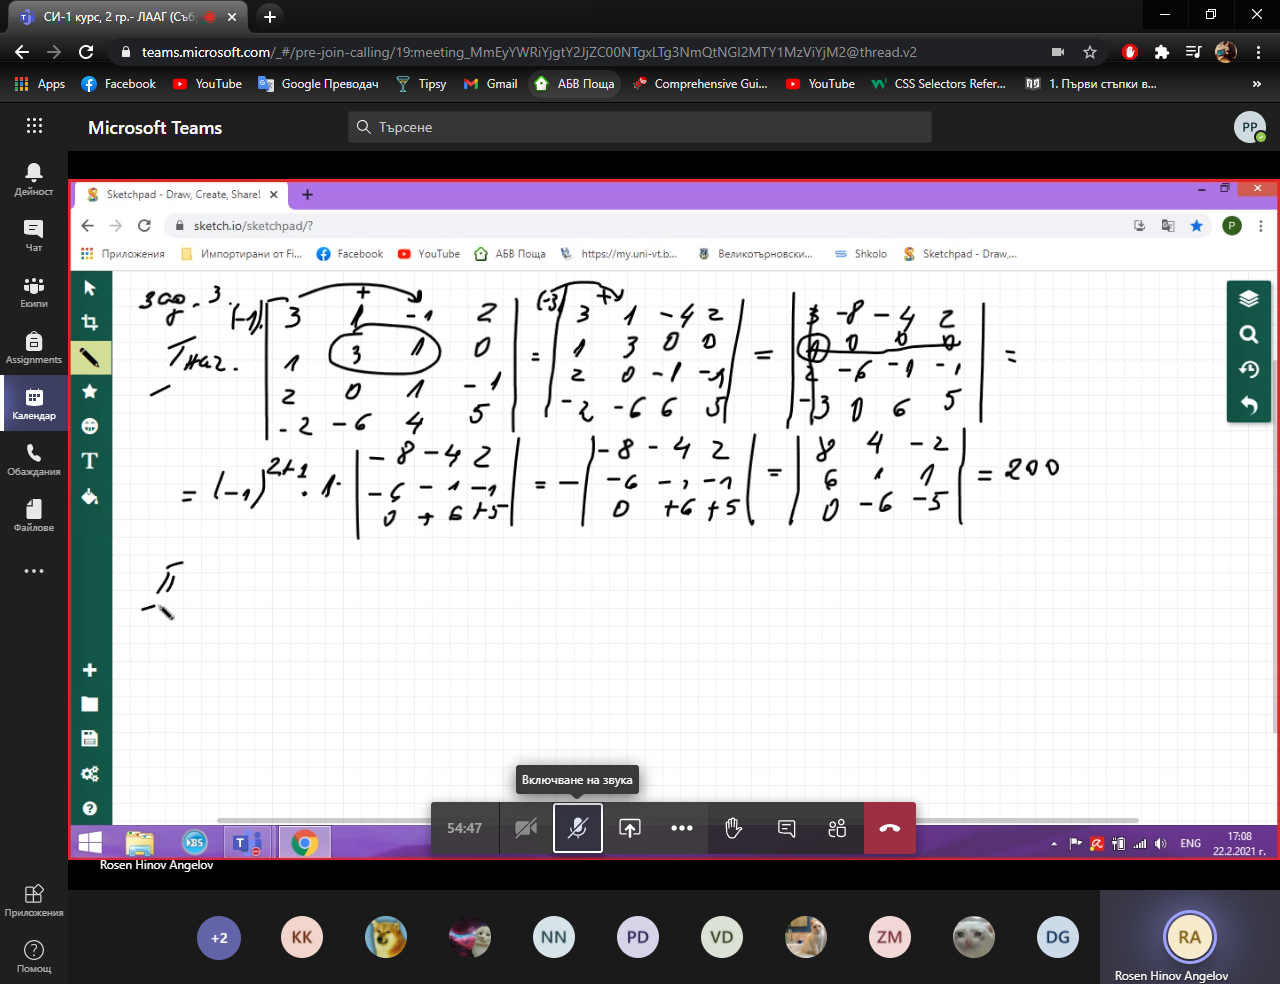 СИ-1 курс, 2 гр.- ЛААГ (Съб
teams.microsoft.com/_#/pre-join-calling/19:meeting_MmEyYWRiYjgtY2JjZC00NTgxLTg3NmQtNGI2MTY1MzViYjM2@thread.v2
Apps Facebook YouTube Google Преводач Tipsy Gmail АБВ Поща Comprehensive Gui... YouTube CSS Selectors Refer... 1. Първи стъпки в... »
Microsoft Teams Търсене PP
Дейност
Чат
Екипи
Assignments
Календар
Обаждания
Файлове
Приложения
Помощ
Sketchpad - Draw, Create, Share!
sketch.io/sketchpad/? P
Приложения Импортирани от Fi... Facebook YouTube АБВ Поща https://my.uni-vt.b... Великотърновски... Shkolo Sketchpad - Draw,...
зад. 3. (-1). + (-3) +
3 1 -1 2 3 1 -4 2 3 -8 -4 2
1 3 1 0 = 1 3 0 0 = 1 0 0 0 =
2 0 1 -1 2 0 -1 -1 2 -6 -1 -1
-2 -6 4 5 -2 -6 6 5 -3 0 6 5
-8 -4 2 -8 -4 2 8 4 -2
= (-1)^2+1 . 1. -6 -1 -1 = - -6 -1 -1 = 6 1 1 = 200
0 +6 +5 0 +6 +5 0 -6 -5
Включване на звука
54:47
ENG 17:08
22.2.2021 г.
Rosen Hinov Angelov
+2 KK NN PD VD ZM DG RA
Rosen Hinov Angelov